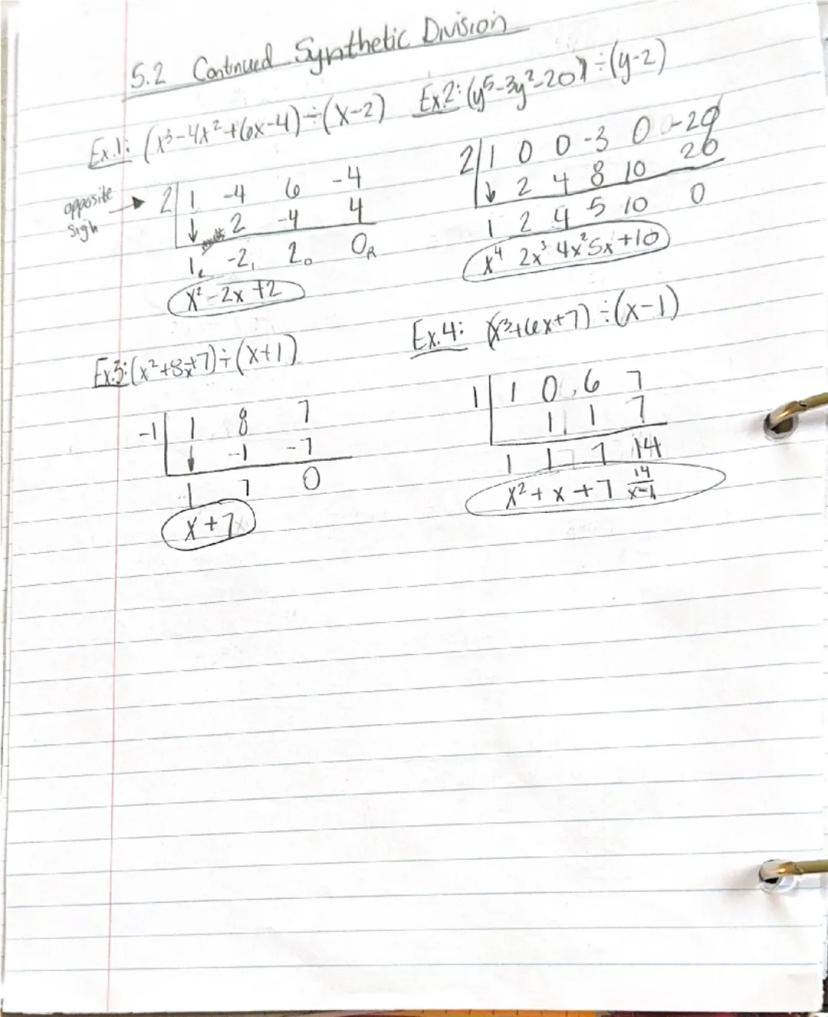 5.2 Continued Synthetic Division
Ex.1: (x³-4x²+6x-4)÷(x-2)
opposite
sign → 2 1 -4 6 -4
↓ 2 -4 4
1 -2 2 0 R
x²-2x+2
Ex2: (y⁵-3y²-20)÷(y-2)
2 1 0 0 -3 0 -20
↓ 2 4 8 10 20
1 2 4 5 10 0
x⁴ 2x³ 4x² 5x +10
Ex.3: (x²+8x+7)÷(x+1)
-1 1 8 7
↓ -1 -7
1 7 0
x+7
Ex.4: (x³+6x+7)÷(x-1)
1 1 0 6 7
1 1 7
1 1 7 14
x²+x+7 14/x-1